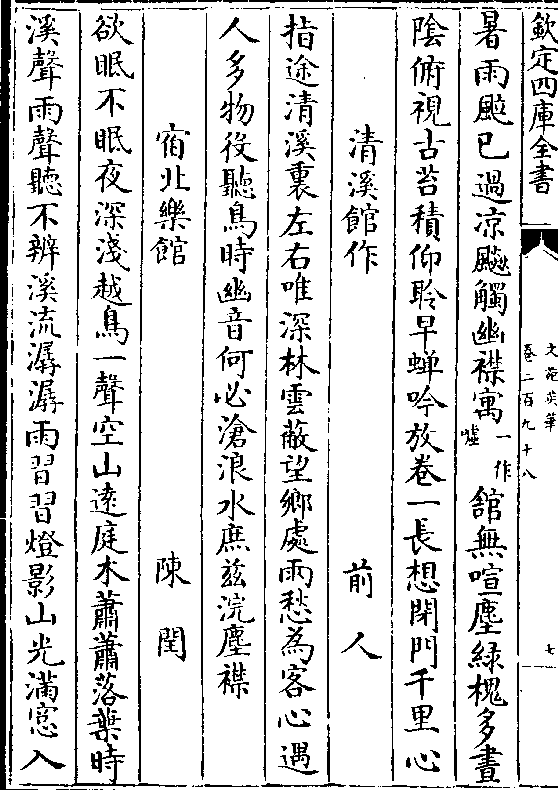 欽定四庫全書
文苑英華
卷二百九十八
七
暑雨颰已過凉飈觸幽襟寓一作嘘館無喧塵緑槐多晝
陰俯視古苔積仰聆早蟬吟放卷一長想閉門千里心
清溪館作 前人
指途清溪裏左右唯深林雲蔽望鄉處雨愁為客心遇
人多物役聽鳥時幽音何必滄浪水庶兹浣塵襟
宿北樂館 陳閏
欲眠不眠夜深淺越鳥一聲空山遠庭木蕭蕭落葉時
溪聲雨聲聽不辨溪流潺潺雨習習燈影山光滿窓入